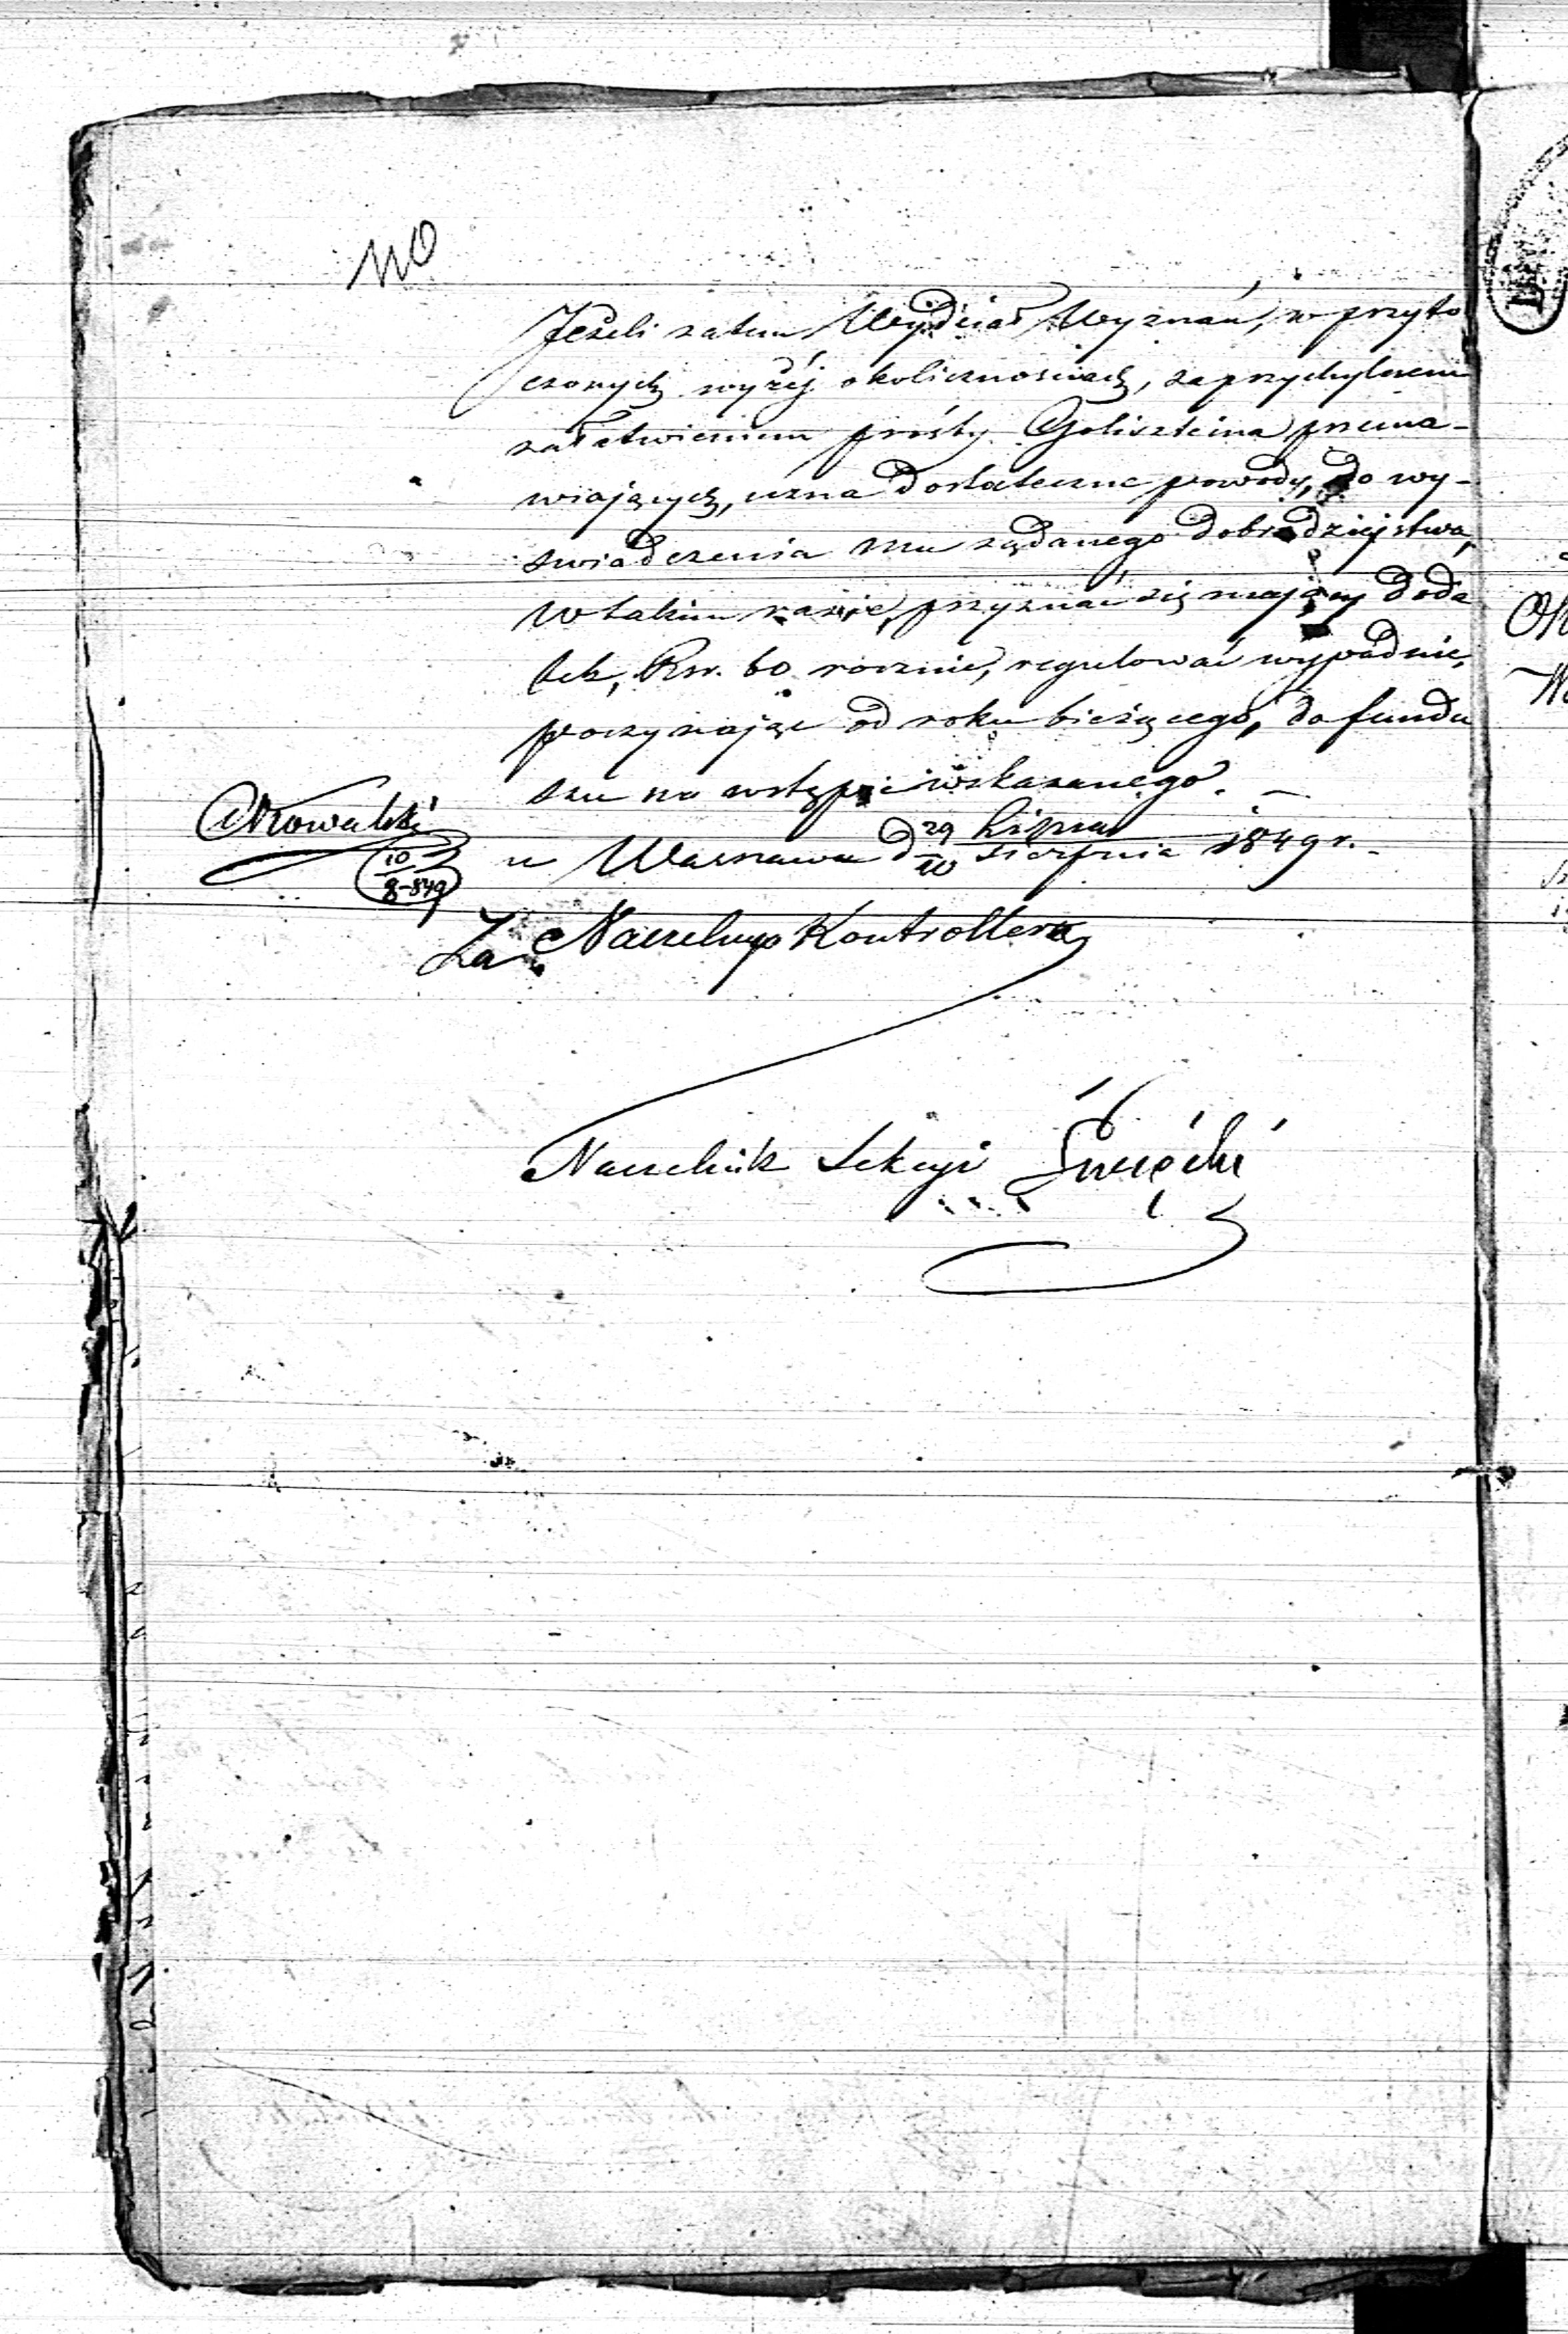 110
Jeżeli zatem Wydział Wyznań, w przyto
czonych wyżéj okolicznościach, za przychylnem
załatwieniem prośby Goliszteina przema-
wiających, uzna dostateczne powody, do wy-
świadczenia mu żądanego dobrodziejstwa,
w takim razie, przyznać się mający doda
tek, Rsr. 60 rocznie, regulować wypadnie,
poczynając od roku bieżącego, do fundu
szu na wstępie wskazanego. —
w Warszawie d 29 Lipca / 10 Sierpnia 1849 r. -
Nowalski
10/8-849
Za Naczelnego Kontrollera
Naczelnik Sekcyi Święcki